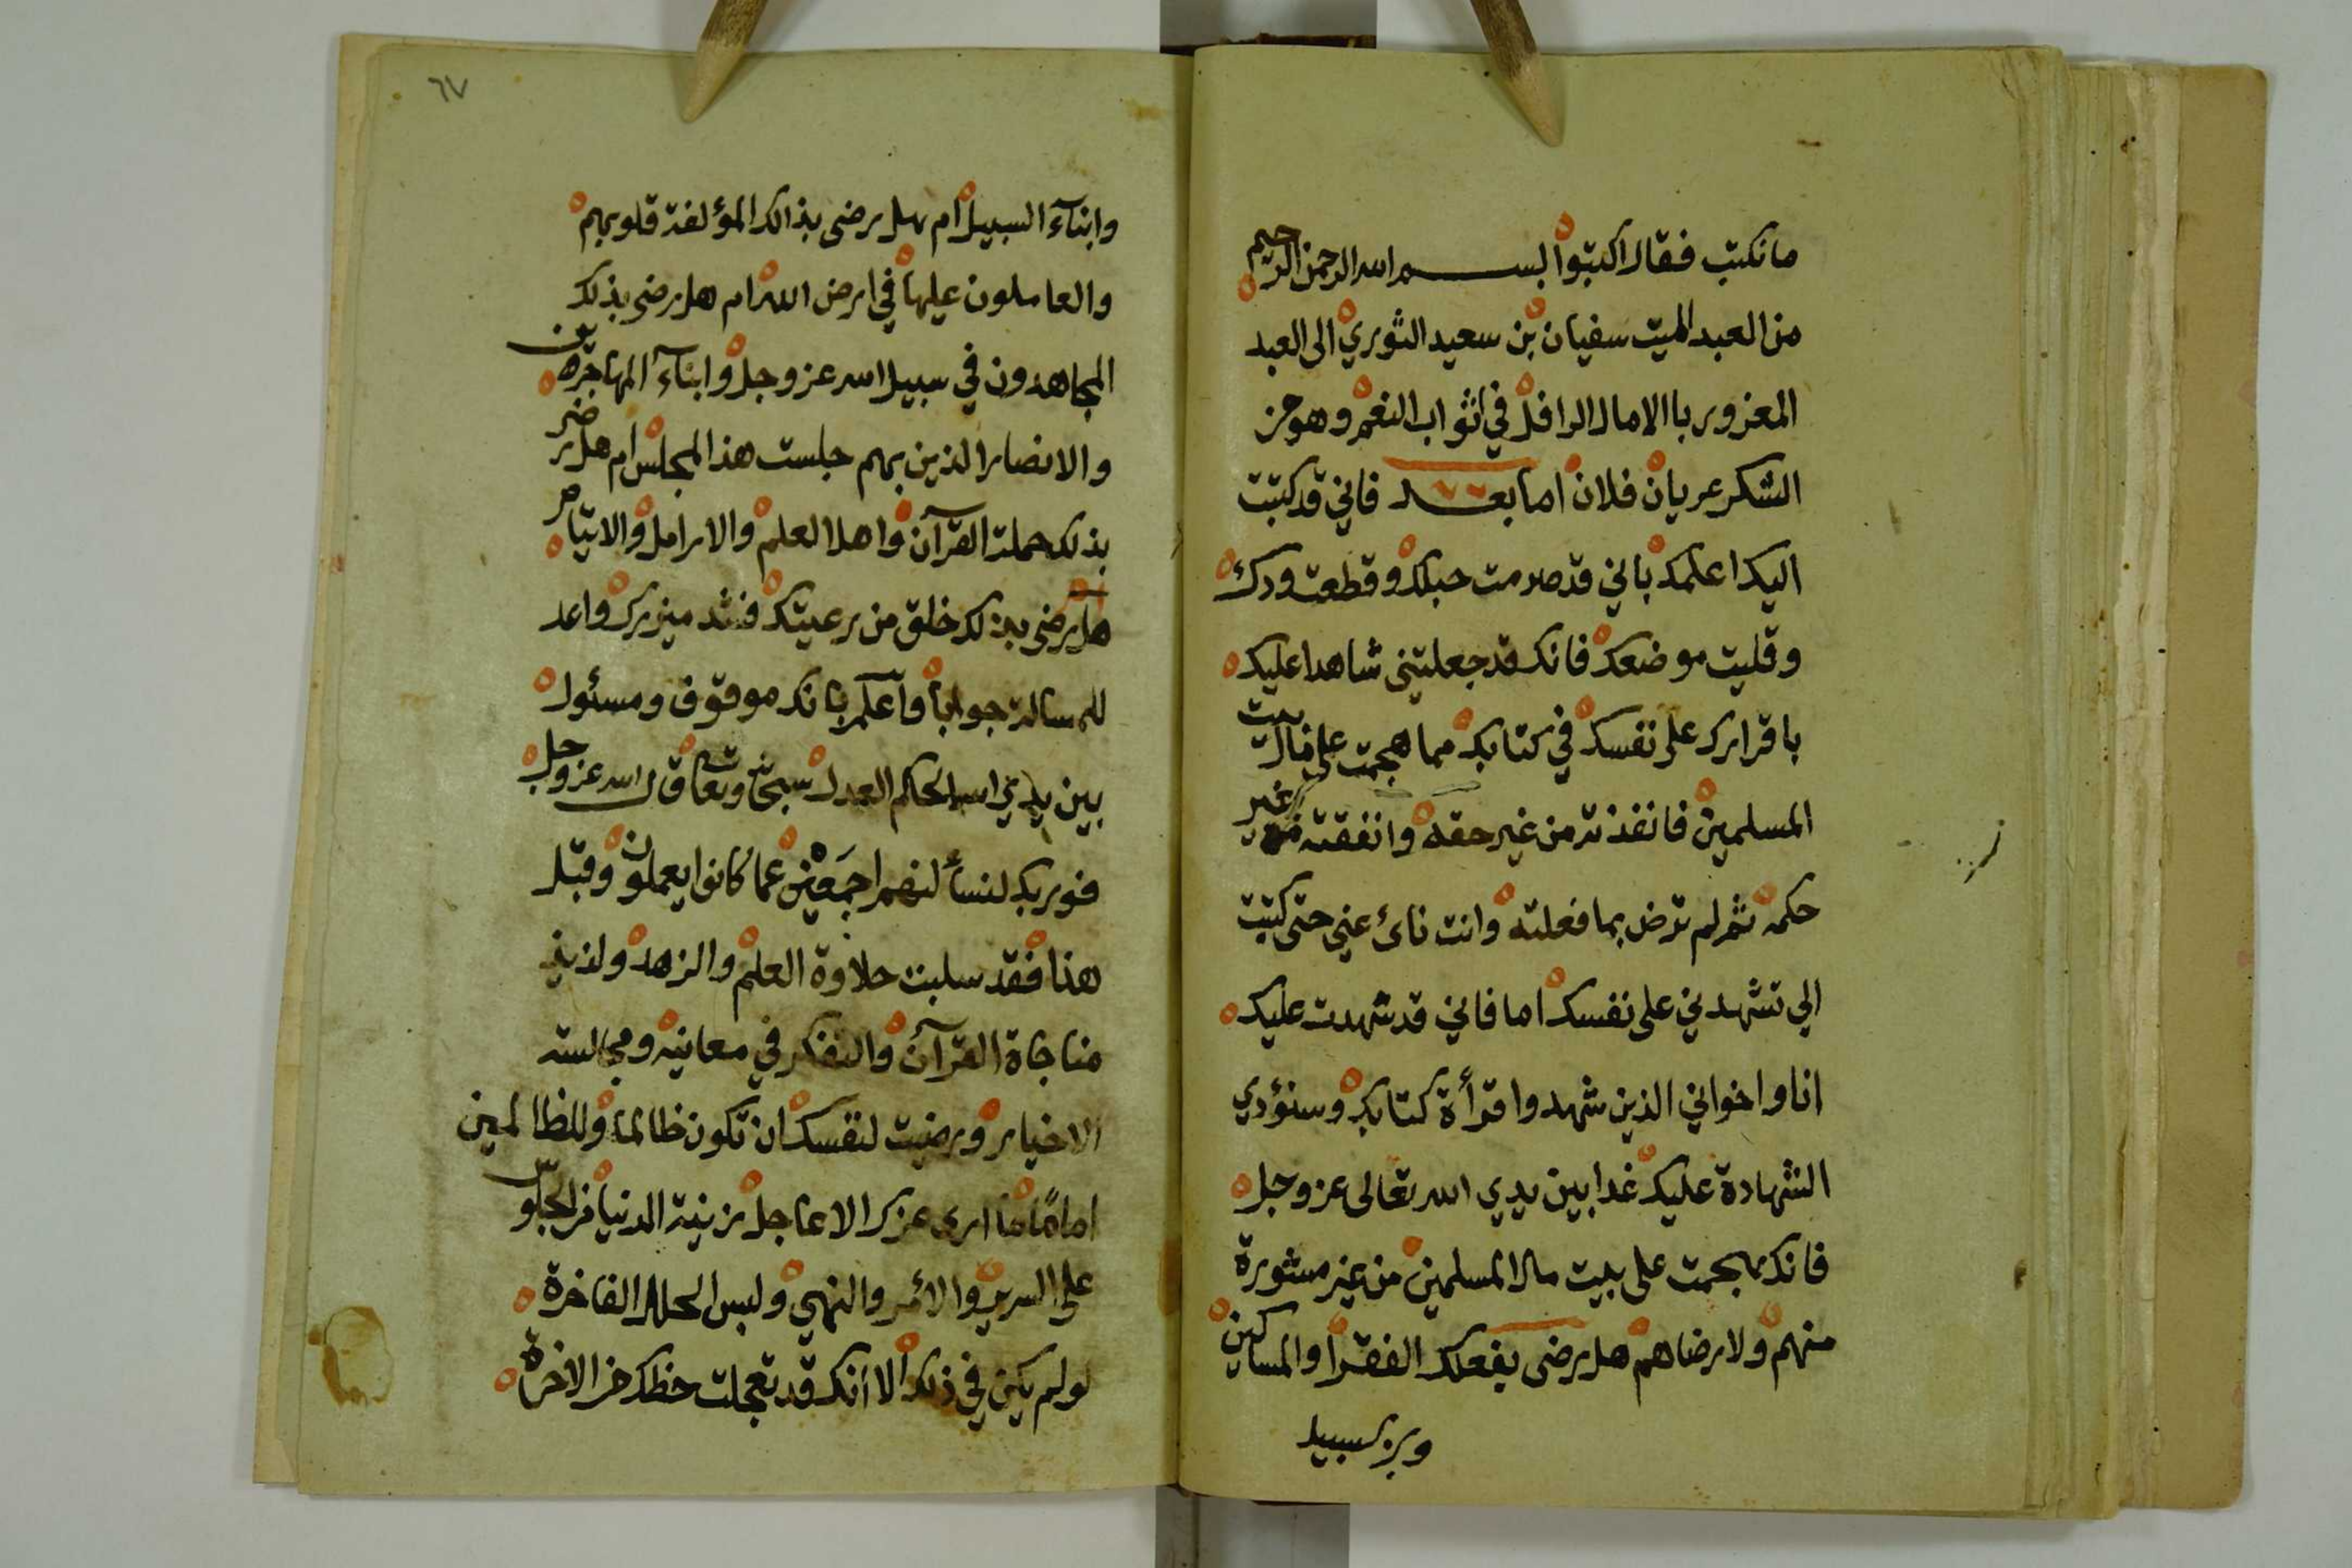 ما نكتب فقال اكتبوا بسم الله الرحمن الرحيم
من العبد الميت سفيان بن سعيد الثوري الى العبد
المغرور باالامال الرافل في اثواب النعم وهو من
الشكر عريان فلان اما بعد فاني قد كتبت
اليك اعلمك باني قد صرمت حبلك وقطعت ودك
وقليت موضعك فانك قد جعلتني شاهدا عليك
باقرارك على نفسك في كتابك مما هجمت على مال بيت
المسلمين فانفذته من غير حقه وانفقته غير
حكمه ثم لم ترض بما فعلته وانت نائ عني حتى كتبت
الي تشهدني على نفسك اما فاني قد شهدت عليك
انا واخواني الذين شهدوا قرأة كتابك وسنؤدي
الشهادة عليك غدا بين يدي الله تعالى عز وجل
فانك هجمت على بيت مال المسلمين من غير مشورة
منهم ولا رضاهم هل يرضى بفعلك الفقرا والمساكين
وبن سبيل
٦٧
وابنآء السبيل ام هل يرضى بذالك المؤلفة قلوبهم
والعاملون عليها في ارض الله ام هل يرضى بذلك
المجاهدون في سبيل الله عز وجل وابنآء المهاجرين
والانصار الذين بهم جلست هذا المجلس ام هل يرضى
بذلك حملت القرآن واهل العلم والارامل والايتام
هل يرضى بذلك خلق من رعيتك فشد ميزرك واعد
للمسالة جواباً وآعلم بانك موقوف ومسئول
بين يدي الله الحكم العدل سبحانه وتعا قال الله عز وجل
فوربك لنسألنهم اجمعين عما كانوا يعملون وقبل
هذا فقد سلبت حلاوة العلم والزهد ولذيذ
مناجاة القرآن والتفكر في معانيه ومجالسته
الاخيار ورضيت لنفسك ان تكون ظالما وللظالمين
اماماً ما ارى عزك الا عاجل زينة الدنيا من الجلوس
على السرير والأمر والنهي ولبس الحلل الفاخرة
لو لم يكن في ذلك الا انك قد تعجلت حظك من الاخرة